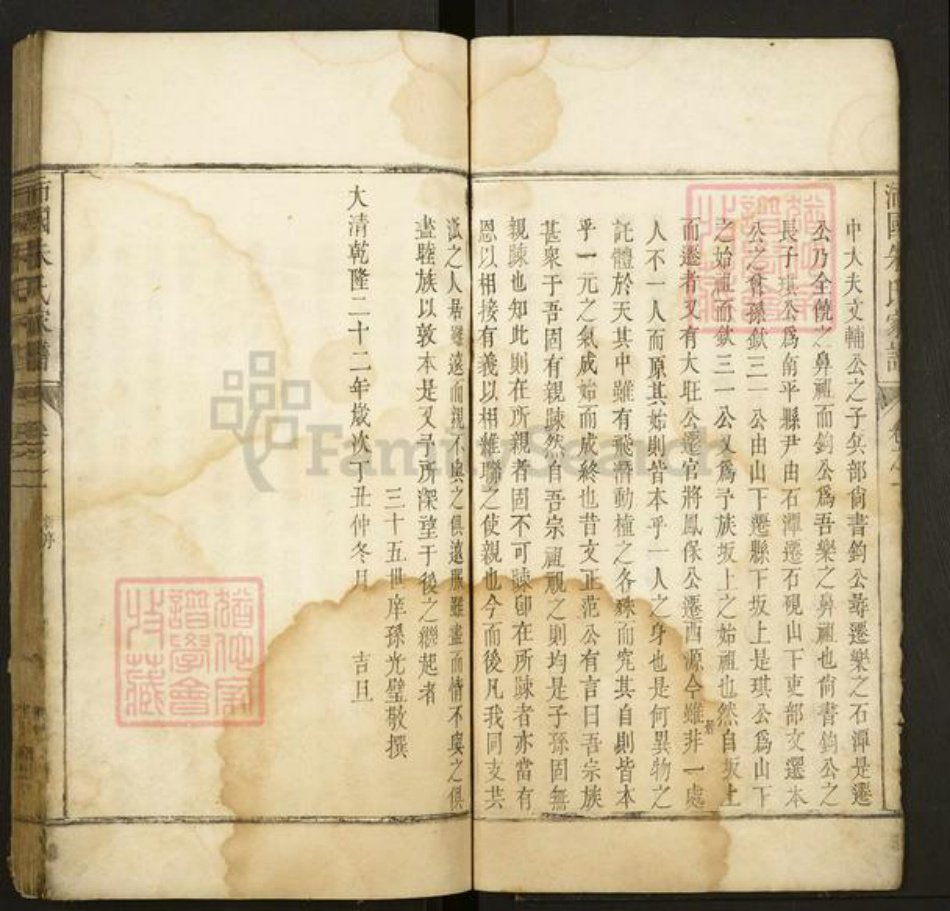 中大夫文輔公之子兵部尙書鈞公尋遷樂之石潭是遷
公乃全饒之鼻祖而鈞公爲吾樂之鼻祖也尙書鈞公之
長子琪公爲南平縣尹由石潭遷石硯山下吏部文選本
公之曾孫欽三一公由山下遷縣下坂上是琪公爲山下
之始祖而欽三一公又爲予族坂上之始祖也然自坂上
而遷者又有大旺公遷官將鳳保公遷西源今雖非一處
人不一人而原其始則皆本乎一人之身也是何異物之
託體於天其中雖有飛潛動植之各殊而究其自則皆本
乎一元之氣成始而成終也昔文正范公有言曰吾宗族
甚衆于吾固有親踈然自吾宗祖視之則均是子孫固無
親踈也知此則在所親者固不可踈卽在所踈者亦當有
恩以相接有義以相維聯之使親也今而後凡我同支共
派之人居雖遠而親不與之俱遠服雖盡而情不與之俱
盡睦族以敦本是又予所深望于後之繼起者
三十五世庠孫光璧敬撰
大清乾隆二十二年歲次丁丑仲冬月 吉旦
朱氏家譜
FamilySearch
猶他家
譜學會
收藏